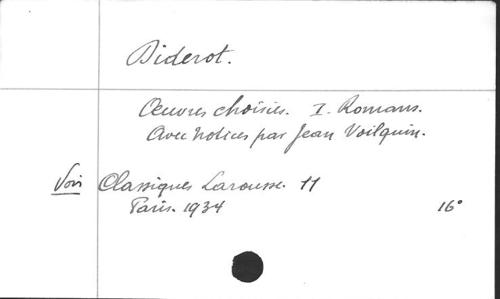 Diderot.
Œuvres choisies. I. Romans.
Avec notices par Jean Voilquin.
Voir Classiques Larousse. 11
Paris. 1934 16°